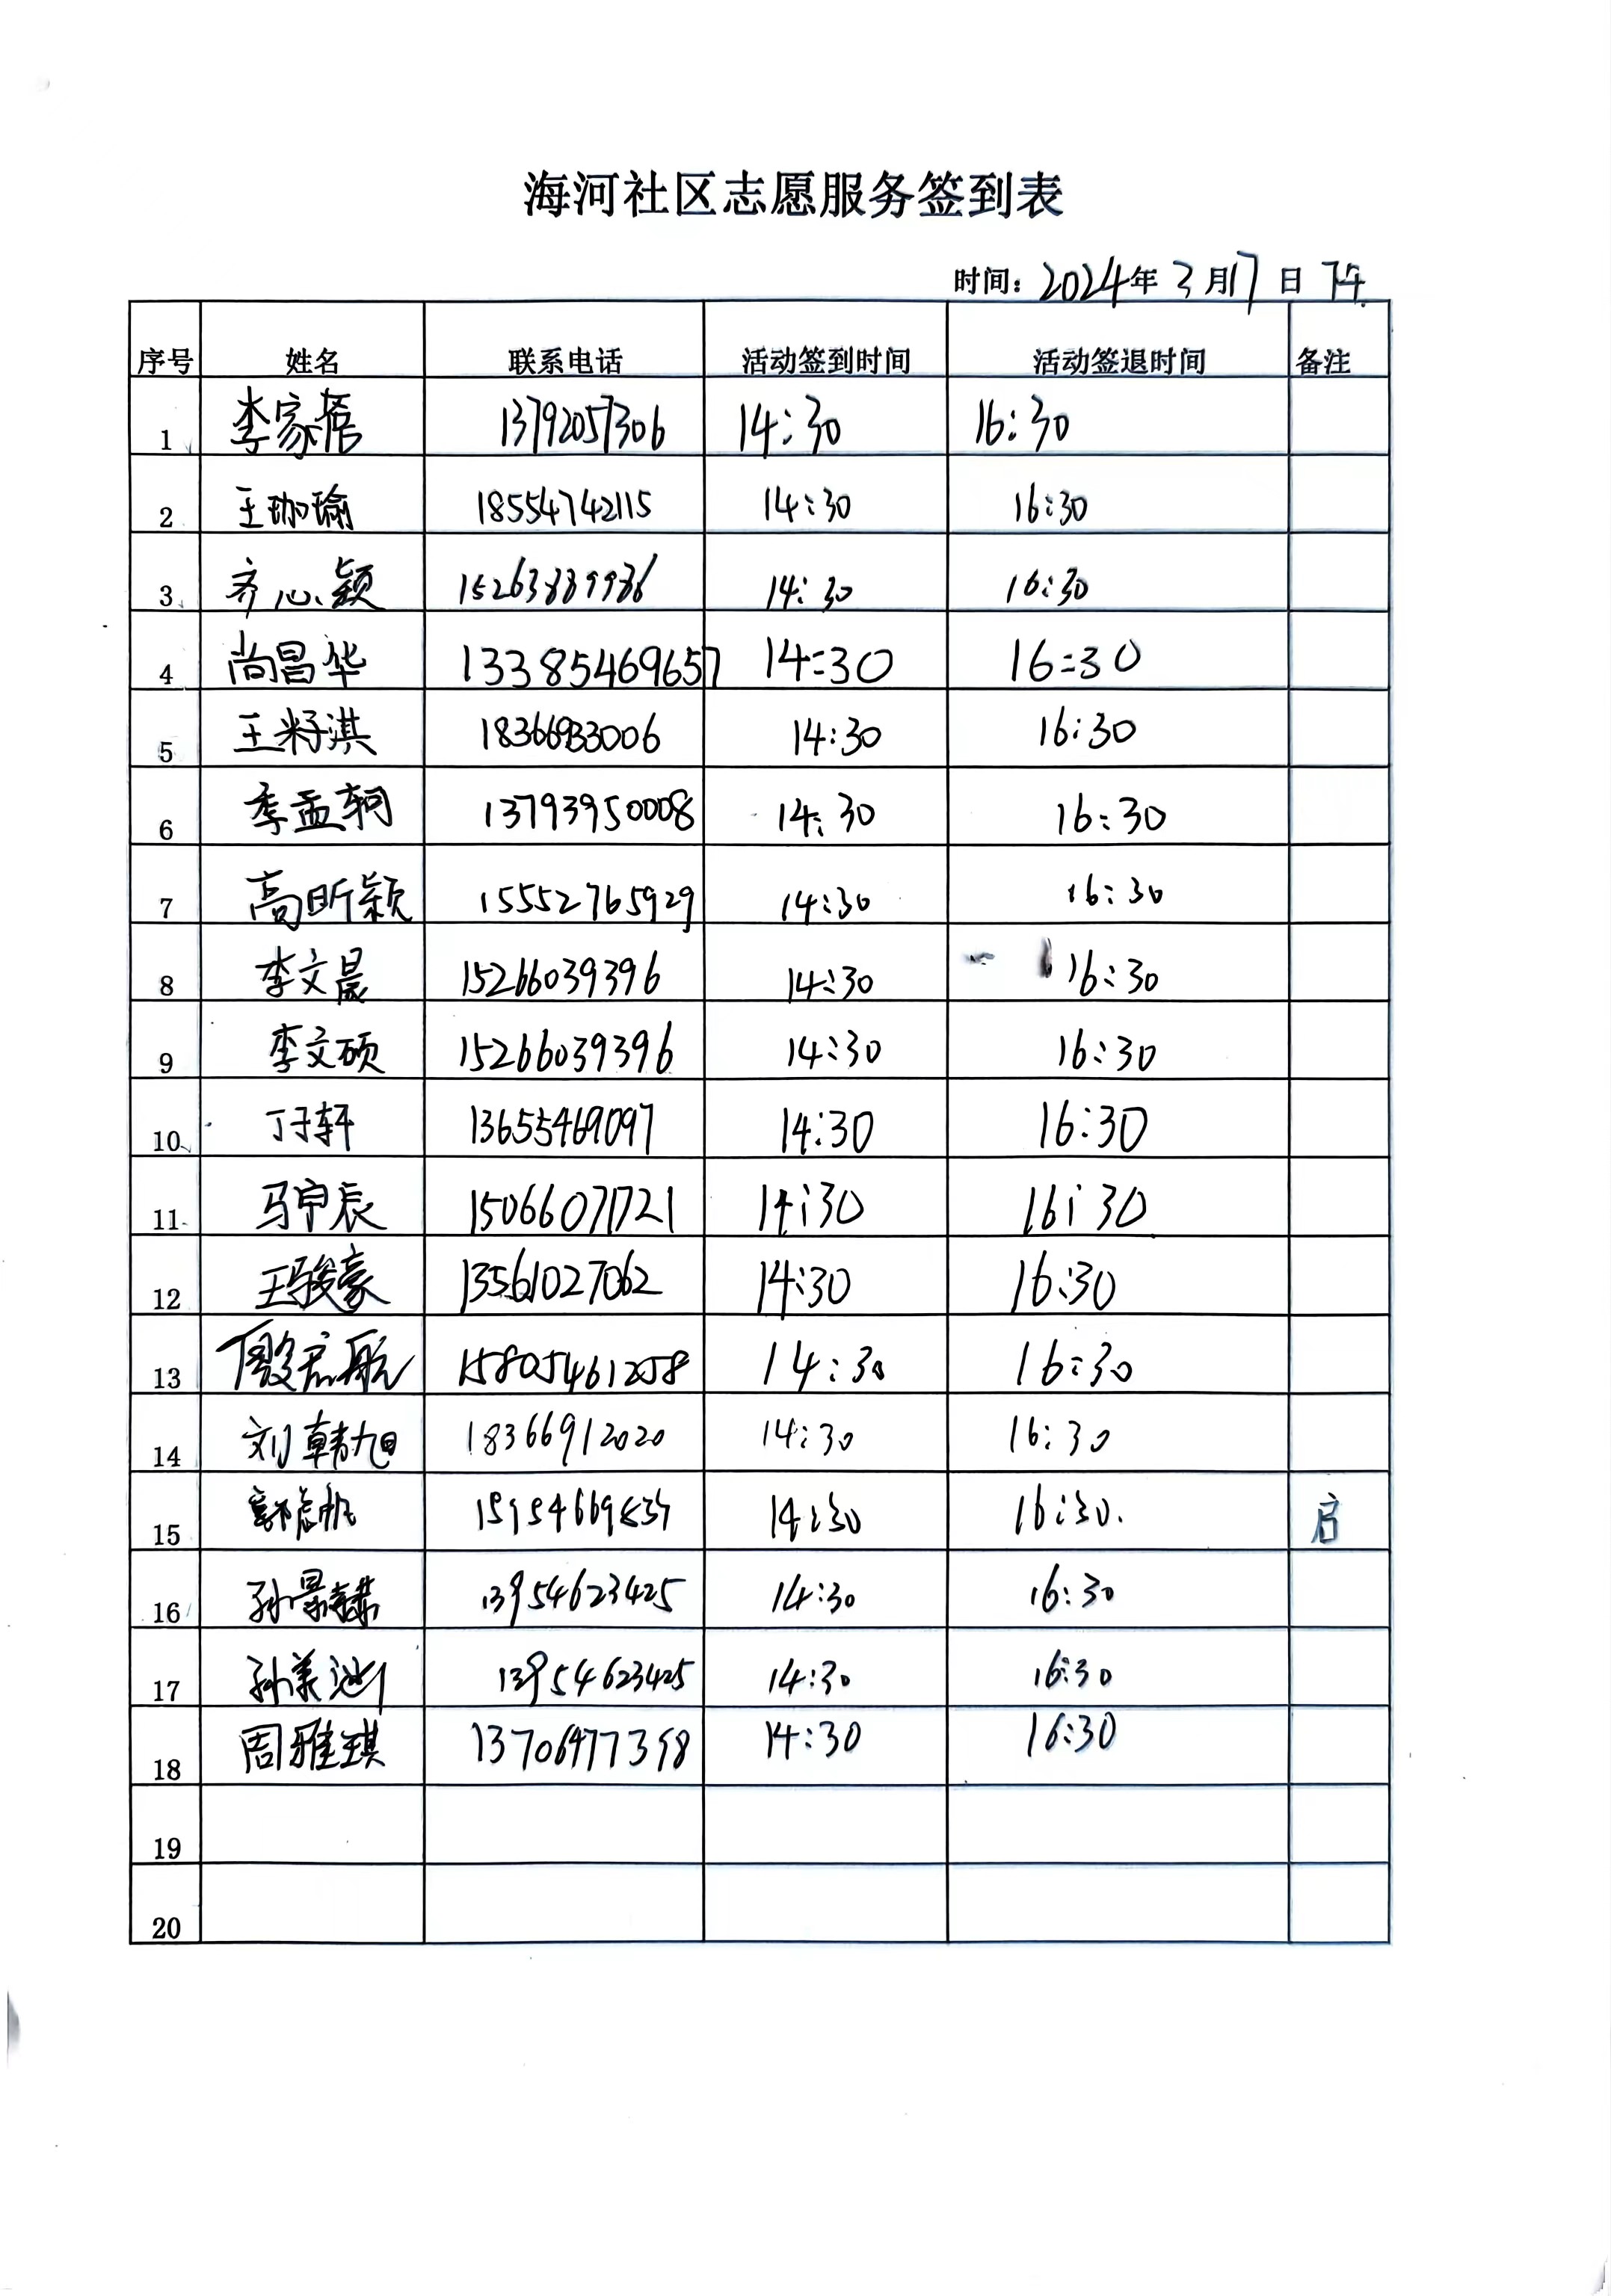 海河社区志愿服务签到表
时间：2024年3月17日 下午
序号 姓名 联系电话 活动签到时间 活动签退时间 备注
1 李家 13792057306 14:30 16:30
2 王珈瑜 18554742115 14:30 16:30
3 齐心颖 14:30 16:30
4 尚昌华 13385469657 14:30 16:30
5 王籽淇 18366933006 14:30 16:30
6 季孟轲 13793950008 14:30 16:30
7 高昕颖 15552765929 14:30 16:30
8 李文晨 15266039396 14:30 16:30
9 李文硕 15266039396 14:30 16:30
10 丁子轩 13655469097 14:30 16:30
11 马宇辰 15066071721 14:30 16:30
12 王骏豪 13561027062 14:30 16:30
13 殷启航 15805461258 14:30 16:30
14 刘韩旭 18366912020 14:30 16:30
15 14:30 16:30. 启
16 孙景 13954623425 14:30 16:30
17 孙美 13954623425 14:30 16:30
18 周雅琪 13706477398 14:30 16:30
19
20